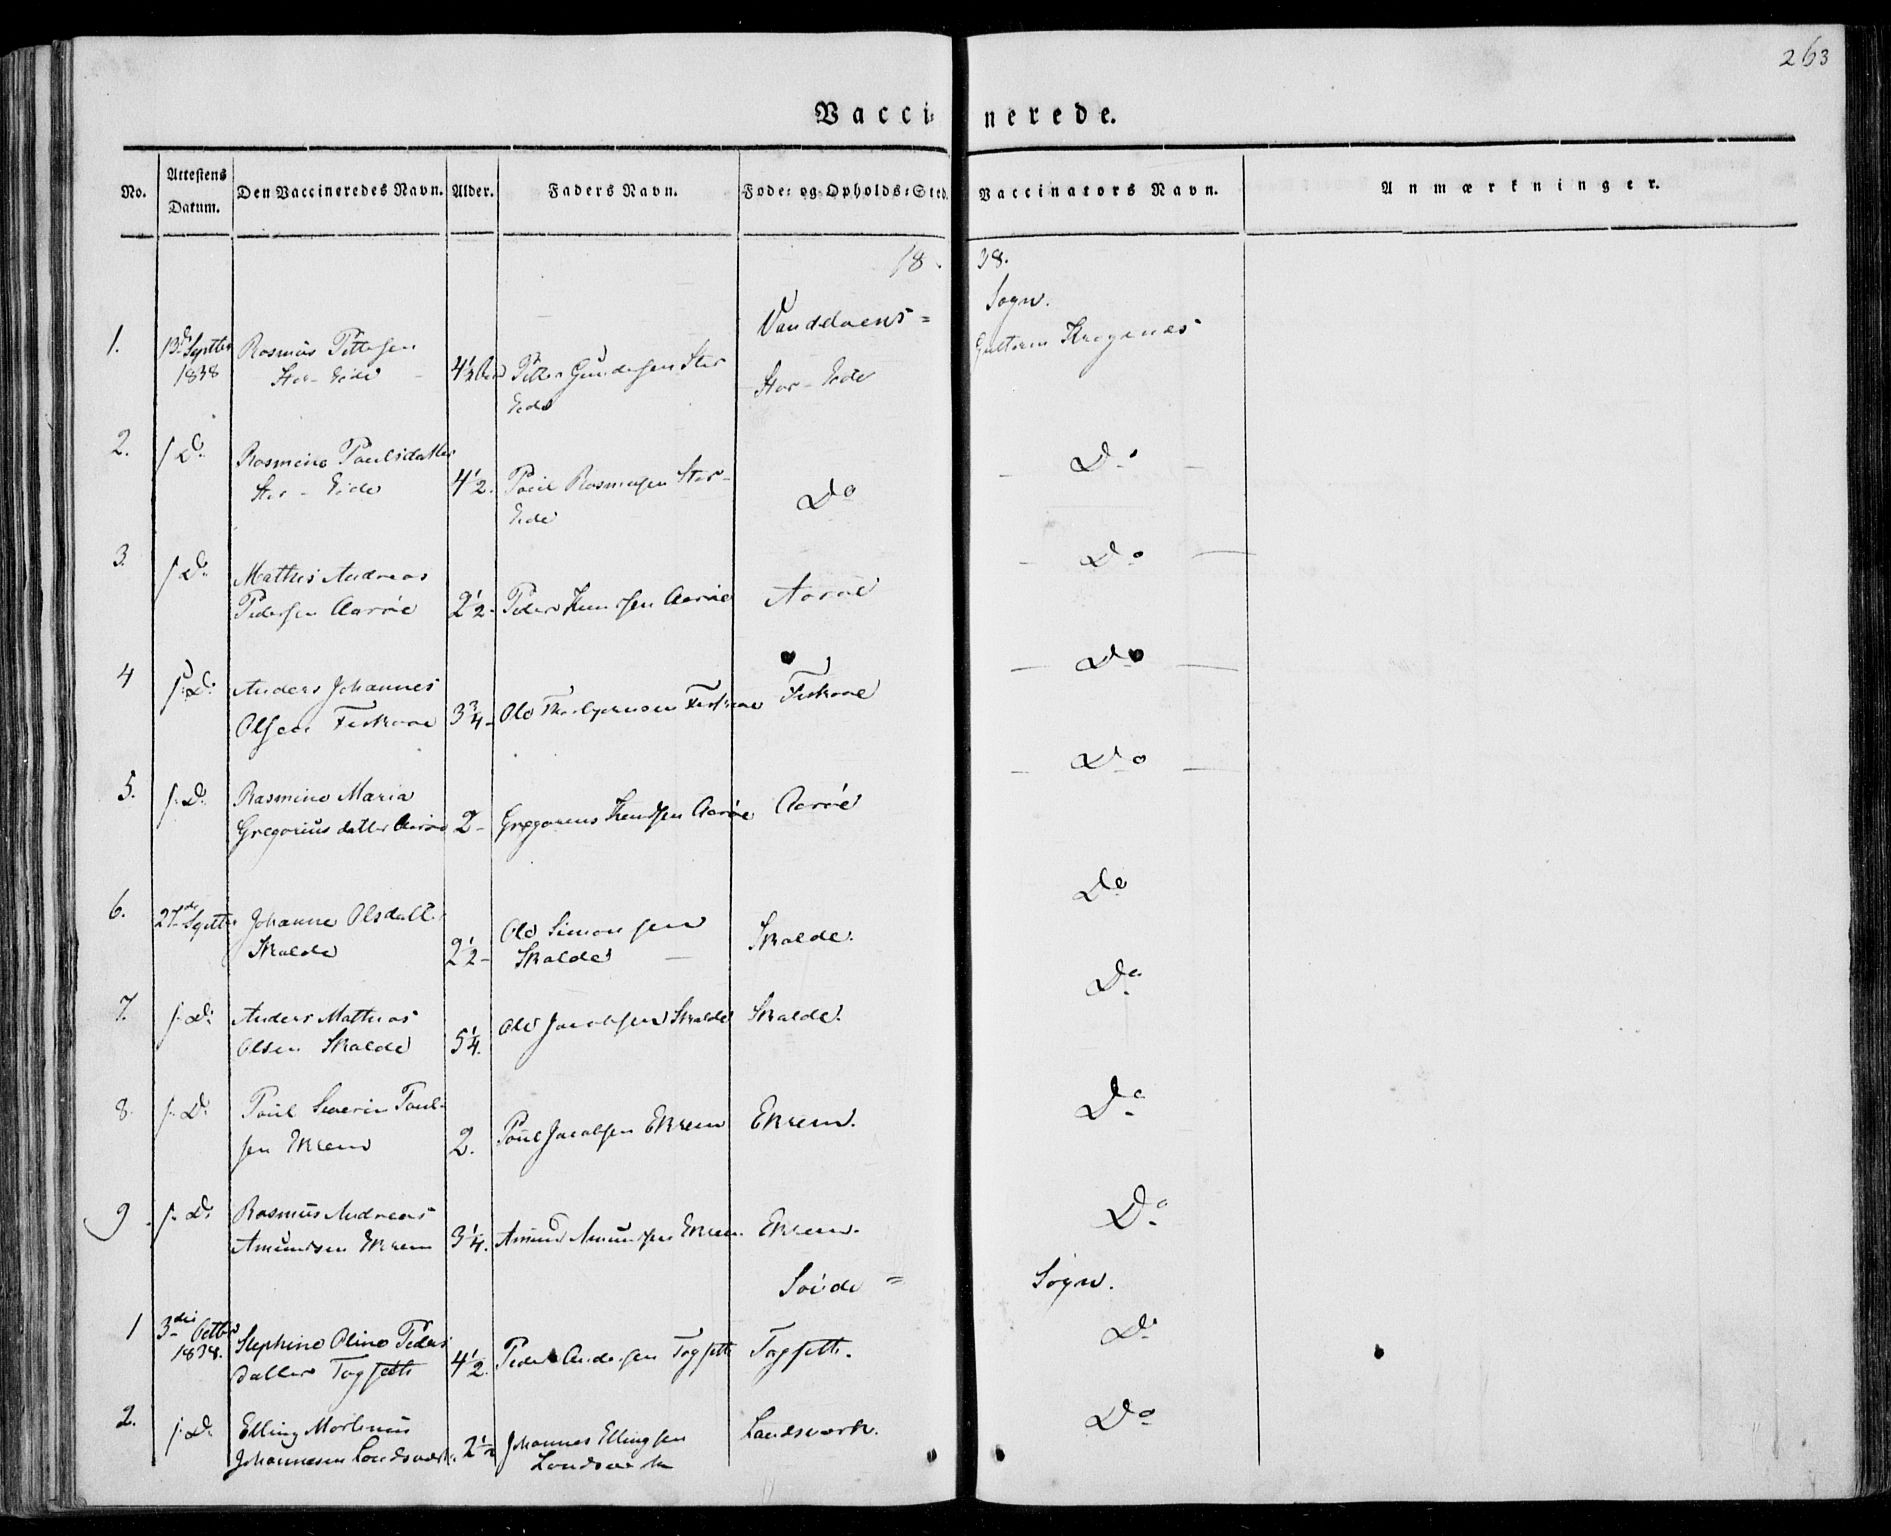 263
Vacci= nerede.
No. Attestens Datum. Den Vaccineredes Navn. Alder. Faders Navn. Føde= og Opholds=Sted. Vaccinators Navn. Anmærkninger.
18 38.
Vanddvens = Sogn.
1. 13de Septbr 1838 Rasmus Pettersen Stor-Eide 4½ Petter Gundersen Stor Eide Stor-Eide Guttorm Krogenæs
2. s: D: Rasmine Paulsdatter Stor-Eide 4½. Paul Rasmusen Stor-Eide Do Do
3. s: D: Mathis Andreas Pedersen Aarøe 2½- Peder Knudsen Aarøe Aarøe Do
4 s: D: Anders Johannes Olsen Fiskaae 3¾- Ole Thorbjørnsen Fiskaae Fiskaae Do
5. s: D: Rasmine Maria Gregorius datter Aarøe 2- Gregorius Knudsen Aarøe Aarøe Do
6. 27de Septbr Johanne Olsdatt. Skalde 2½- Ole Simonsen Skalde Skalde. Do
7. s: D: Anders Mathias Olsen Skalde 5¼. Ole Jacobsen Skalde Skalde. Do
8. s: D: Paul Severin Paulsen Ekrem 2. Paul Jacobsen Ekrem Ekrem. Do
9. s: D: Rasmus Andreas Amundsen Ekrem 3¼. Amund Amundsen Ekrem Ekrem. Do
Søvde = Sogn.
1 3die Octbr 1838. Stephine Oline Peders datter Togseth 4½. Peder Andersen Togseth Togseth. Do
2. s: D: Elling Martinus Johannesen Landsværk. 2½ Johannes Ellingsen Landsværk Landsværk. Do